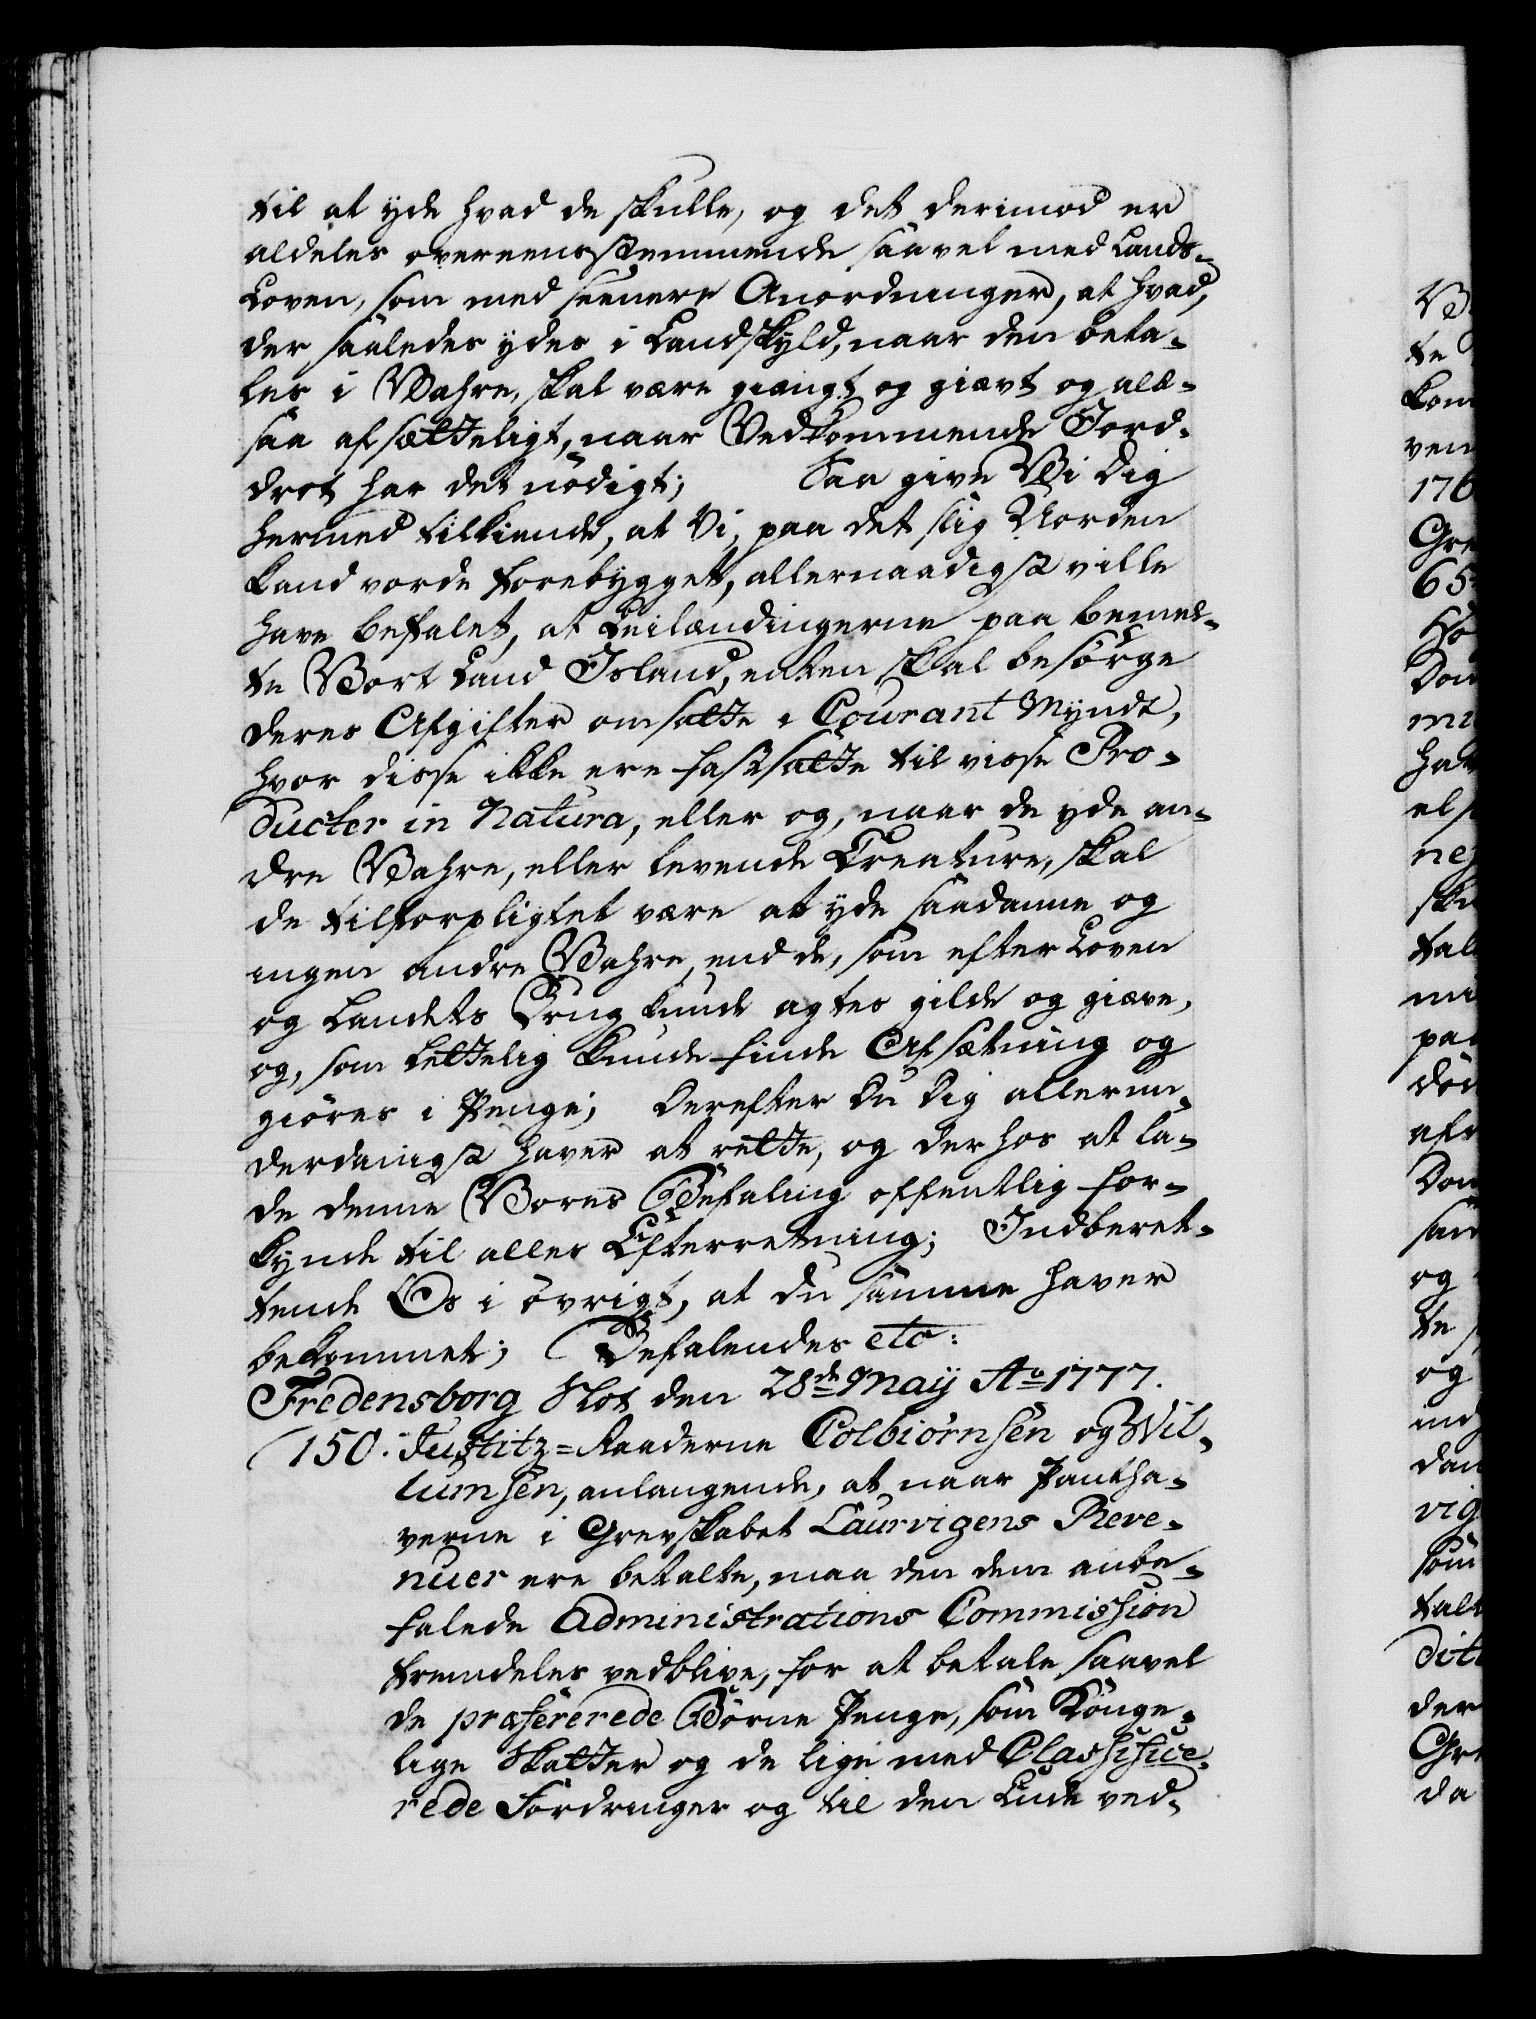 til at yde hvad de skulle, og det derimod er
aldeles overeensstemmende saavel med Lands-
Loven, som med seenere Anordninger, at hvad,
der saaledes ydes i Landskyld, naar den beta-
les i Vahre, skal være giængt og giævt og alt-
saa afsætteligt, naar Vedkommende Jord-
drot har det nødigt; Saa give Vi Dig
hermed tilkiende, at Vi, paa det slig Uorden
kand vorde forebygget, allernaadigst ville
have befalet, at Leilændingerne paa bemel-
te Vort Land Island, enten skal besørge
deres Afgifter omsatte i Courant Myndt,
hvor disse ikke ere fastsatte til visse Pro-
ducter in Natura, eller og, naar de yde an-
dre Vahre, eller levende Creature, skal
de tilforpligtet være at yde saadanne og
ingen andre Vahre, end de, som efter Loven
og Landets Brug kunde agtes gilde og giæve,
og, som lettelig kunde finde Afsætning og
giøres i Penge; Derefter Du Dig allerun-
derdanigst haver at rette, og derhos at la-
de denne Vores Befaling offentlig for-
kynde til alles Efterretning; Indberet-
tende Os i øvrigt, at du samme haver
bekommet; Befalendes etc:
Fredensborg Slot den 28de May Ao 1777.
150. Justitz-Raaderne Colbiørnsen og Wil-
lumsen, anlangende, at naar Pantha-
verne i Grevskabet Laurvigens Reve-
nuer ere betalte, maa den dem anbe-
falede Administrations Commission
fremdeles vedblive, for at betale saavel
de præfererede Børne Penge, som Konge-
lige Skatter og de lige med Classifice-
rede Fordringer og til den Ende ved-